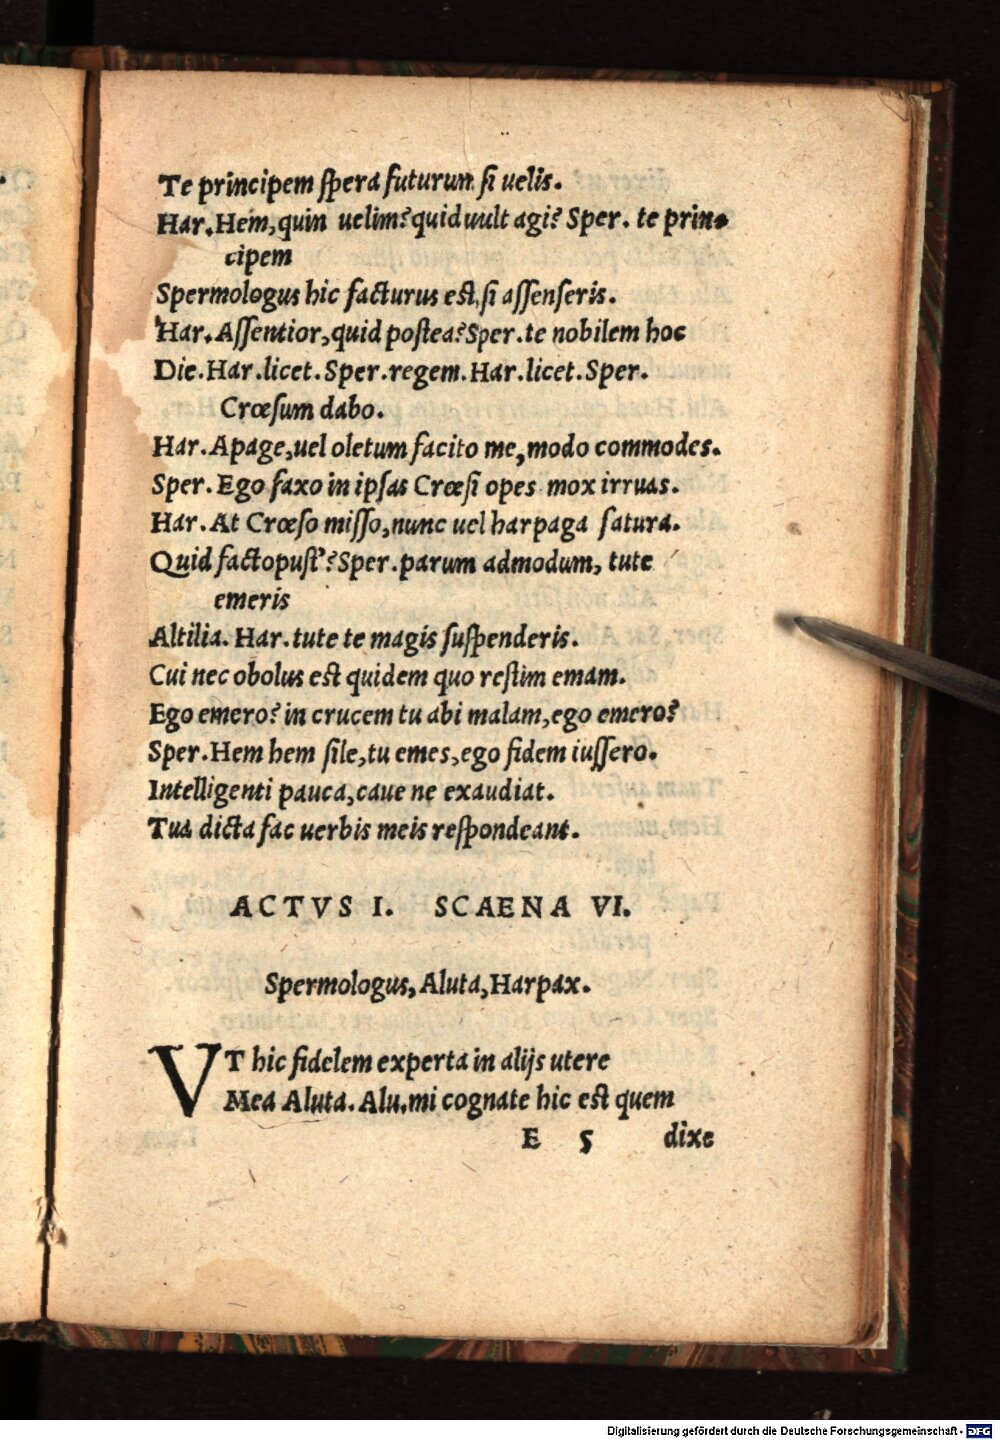 Te principem ſpera futurum ſi uelis.
Har. Hem, quin uelim? quid uult agi? Sper. te prin-
cipem
Spermologus hic facturus eſt, ſi aſſenſeris.
Har. Aſſentior, quid poſtea? Sper. te nobilem hoc
Die. Har. licet. Sper. regem. Har. licet. Sper.
Crœſum dabo.
Har. Apage, uel oletum facito me, modo commodes.
Sper. Ego faxo in ipſas Crœſi opes mox irruas.
Har. At Crœſo miſſo, nunc uel harpaga ſatura.
Quid factopuſt'? Sper. parum admodum, tute
emeris
Altilia. Har. tute te magis ſuſpenderis.
Cui nec obolus eſt quidem quo reſtim emam.
Ego emero? in crucem tu abi malam, ego emero?
Sper. Hem hem ſile, tu emes, ego fidem iuſſero.
Intelligenti pauca, caue ne exaudiat.
Tua dicta fac uerbis meis reſpondeant.
ACTVS I. SCAENA VI.
Spermologus, Aluta, Harpax.
VT hic fidelem experta in alijs utere
Mea Aluta. Alu. mi cognate hic eſt quem
E 5 dixe
Digitalisierung gefördert durch die Deutsche Forschungsgemeinschaft - DFG